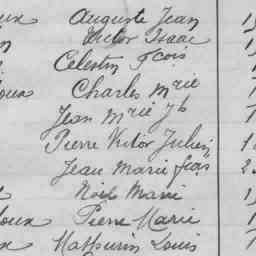 oux Auguste Jean 1
n Victor Isaac 1
Celestin Fcois 1
oux Charles Mrie 1
Jean Mrie Jh 1
Pierre Victor Julien 1
Jean Marie fcois 2
Noël Marie 1
oux Pierre Marie 1
ux Mathurin Louis 1